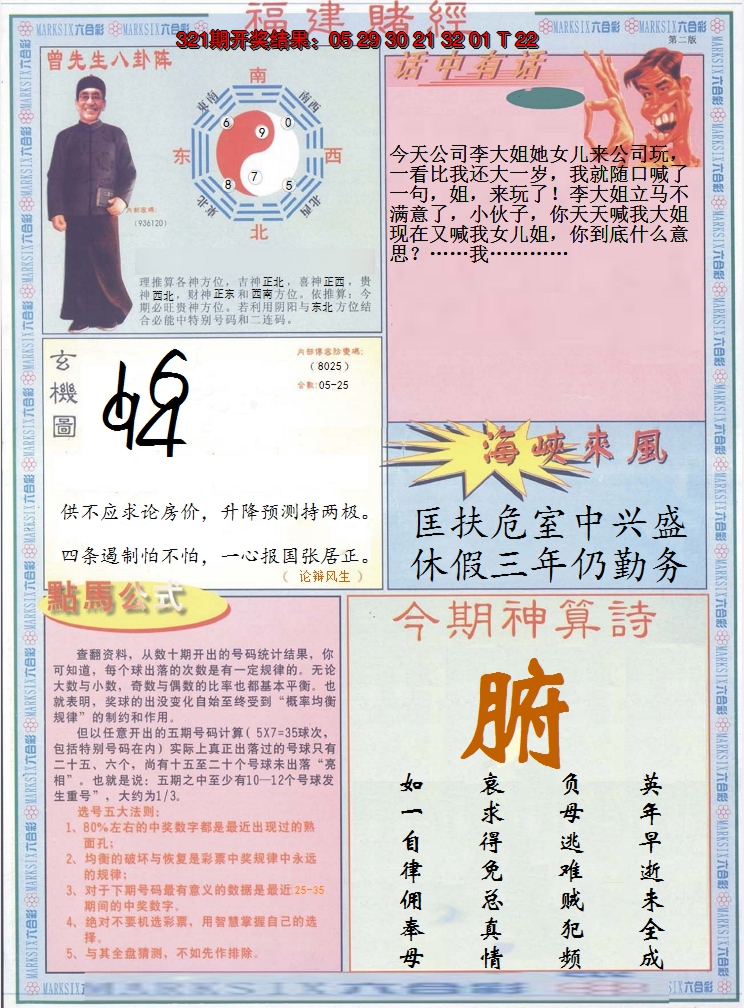 福建賭經
321期开奖结果：05 29 30 21 32 01 T 22
第二版
曾先生八卦阵
南
东南
西南
东
西
东北
西北
北
6
9
0
8
7
5
内部密码:
(936120)
理推算各神方位，吉神正北，喜神正西，贵
神西北，财神正东和西南方位。依推算：今
期必旺贵神方位。若利用阴阳与东北方位结
合必能中特别号码和二连码。
话中有话
今天公司李大姐她女儿来公司玩，
一看比我还大一岁，我就随口喊了
一句，姐，来玩了！李大姐立马不
满意了，小伙子，你天天喊我大姐
现在又喊我女儿姐，你到底什么意
思？……我…………
玄機圖
（8025）
合数:05-25
供不应求论房价，升降预测持两极。
四条遏制怕不怕，一心报国张居正。
（ 论辩风生 ）
海峽來風
匡扶危室中兴盛
休假三年仍勤务
點馬公式
查翻资料，从数十期开出的号码统计结果，你
可知道，每个球出落的次数是有一定规律的。无论
大数与小数，奇数与偶数的比率也都基本平衡。也
就表明，奖球的出没变化自始至终受到“概率均衡
规律”的制约和作用。
但以任意开出的五期号码计算( 5X7=35球次，
包括特别号码在内）实际上真正出落过的号球只有
二十五、六个，尚有十五至二十个号球未出落“亮
相”。也就是说：五期之中至少有10—12个号球发
生重号”，大约为1/3。
选号五大法则：
1、80%左右的中奖数字都是最近出现过的熟
面孔；
2、均衡的破坏与恢复是彩票中奖规律中永远
的规律；
3、对于下期号码最有意义的数据是最近25-35
期间的中奖数字。
4、绝对不要机选彩票，用智慧掌握自己的选
择。
5、与其全盘猜测，不如先作排除。
今期神算詩
腑
英年早逝未全成
负母逃难贼犯频
哀求得免总真情
如一自律佣奉母
MARKSIX六合彩